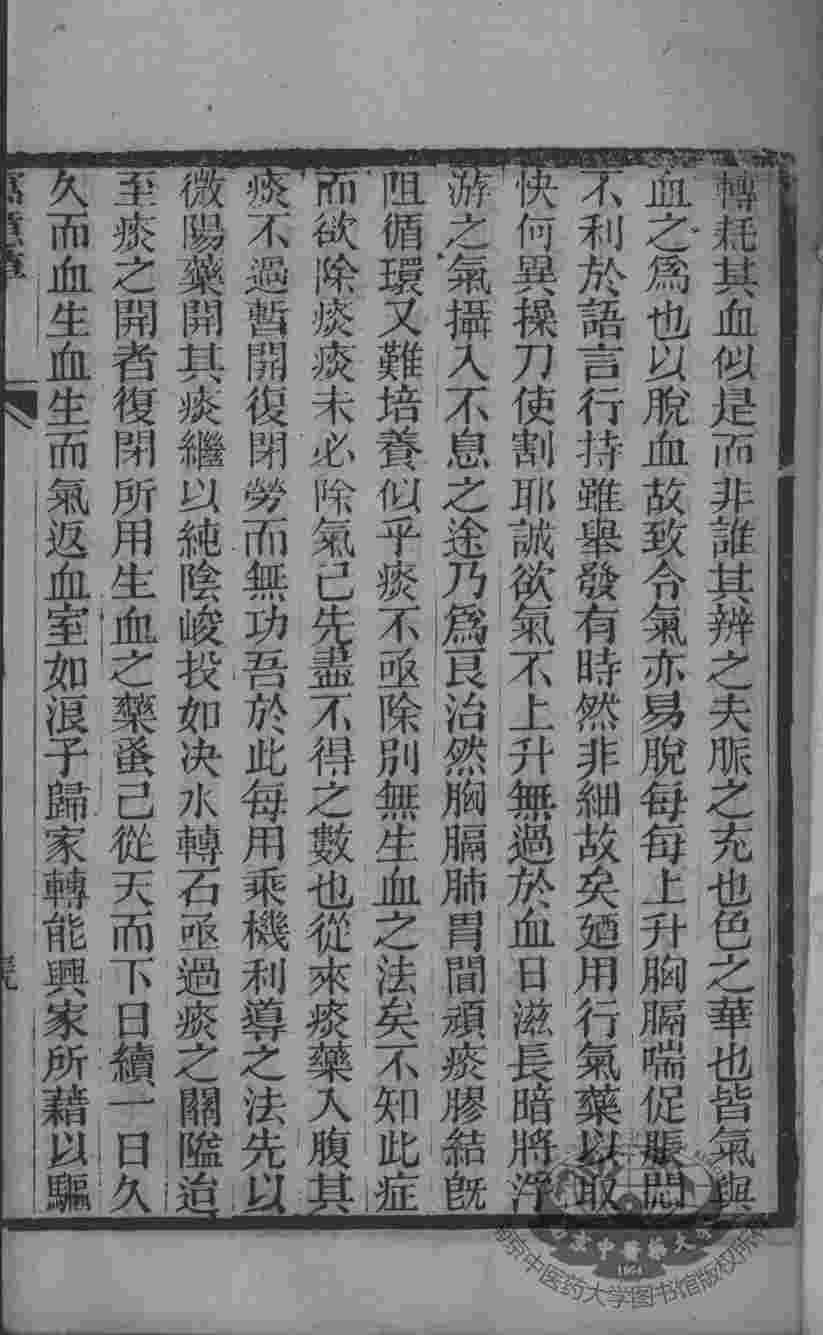 轉耗其血似是而非誰其辨之夫脈之充也色之華也皆氣與
血之爲也以脫血故致令氣亦易脫每每上升胸膈喘促脹悶
不利於語言行持雖舉發有時然非細故矣廼用行氣藥以取
快何異操刀使割耶誠欲氣不上升無過於血日滋長暗將浮
游之氣攝入不息之途乃爲良治然胸膈肺胃間頑痰膠結旣
阻循環又難培養似乎痰不亟除別無生血之法矣不知此症
而欲除痰痰未必除氣已先盡不得之數也從來痰藥入腹其
痰不過暫開復閉勞而無功吾於此每用乘機利導之法先以
微陽藥開其痰繼以純陰峻投如决水轉石亟過痰之關隘迨
至痰之開者復閉所用生血之藥蚤已從天而下日續一日久
久而血生血生而氣返血室如浪子歸家轉能興家所藉以驅
寓意草
京中醫藥大
1954
南京中医药大学图书馆版权所有